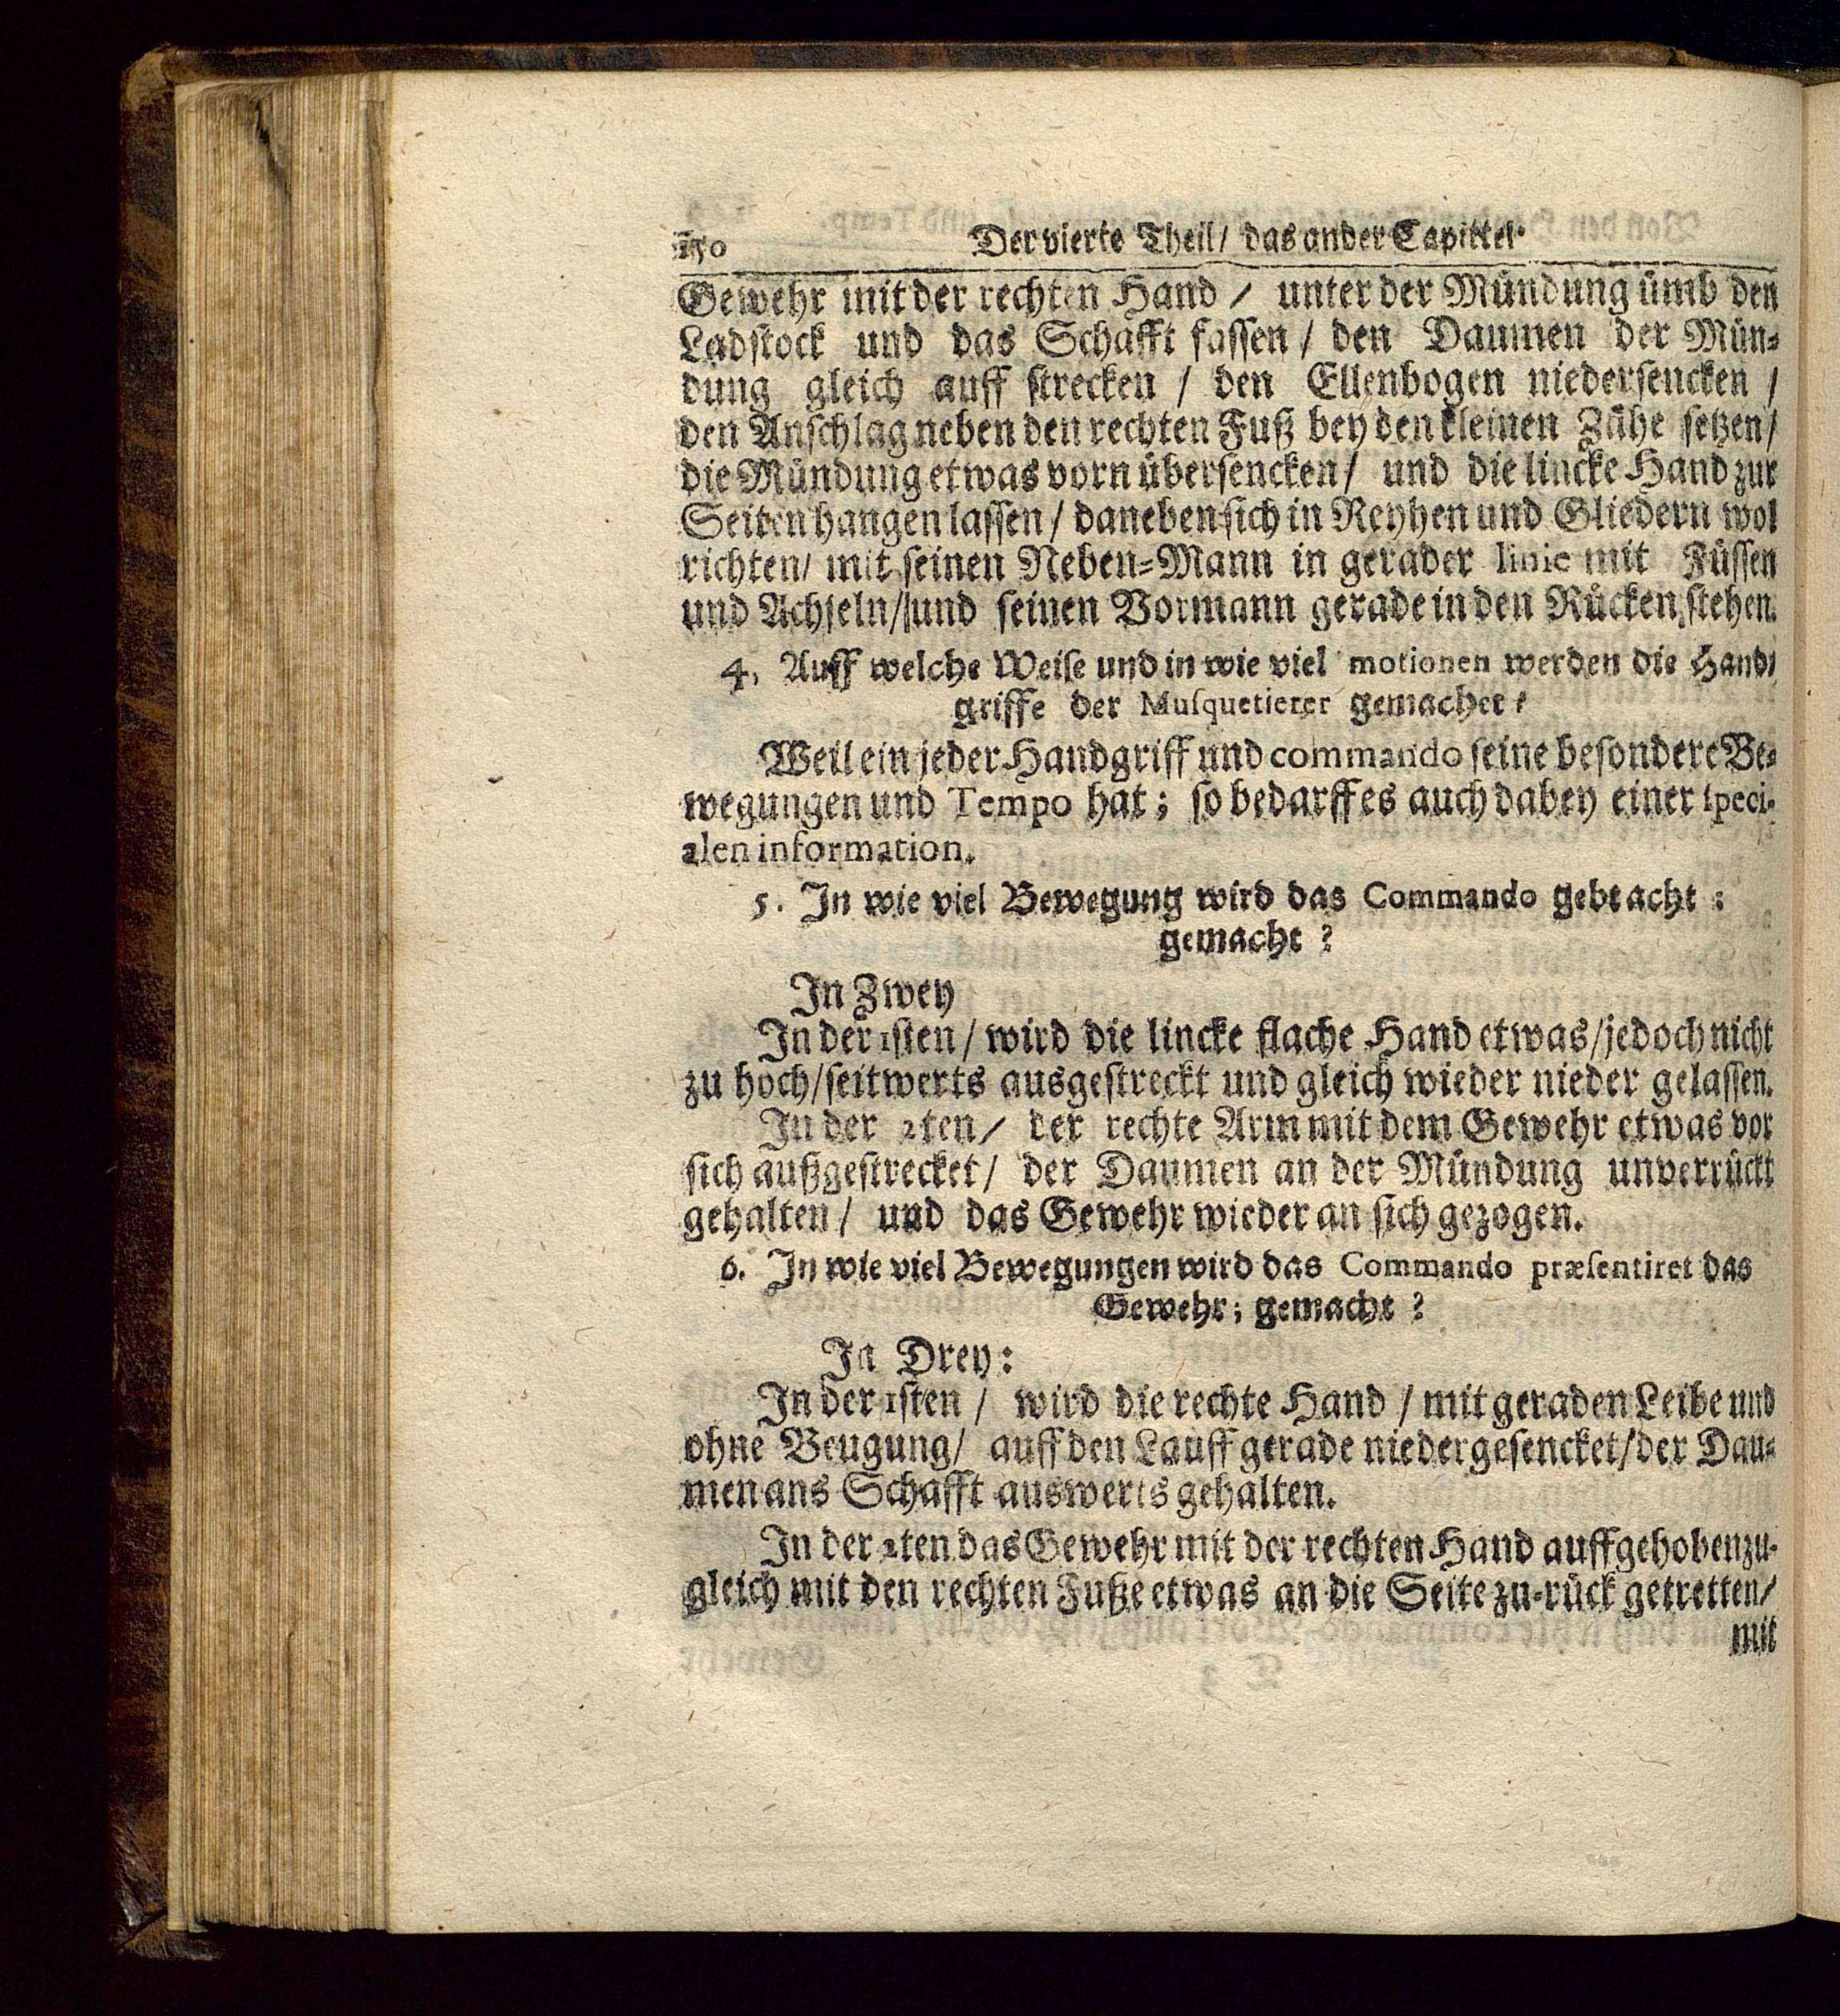 150 Der vierte Theil / das ander Capittel.
Gewehr mit der rechten Hand / unter der Mündung ümb den
Ladstock und das Schafft fassen / den Daumen der Mün-
dung gleich auff strecken / den Ellenbogen niedersencken /
den Anschlag neben den rechten Fuß bey den kleinen Zähe setzen /
die Mündung etwas vorn übersencken / und die lincke Hand zur
Seiten hangen lassen / daneben sich in Reyhen und Gliedern wol
richten / mit seinen Neben-Mann in gerader linie mit Füssen
und Achseln / und seinen Vormann gerade in den Rücken stehen.
4. Auff welche Weise und in wie viel motionen werden die Hand-
griffe der Musquetierer gemachet?
Weil ein jeder Handgriff und commando seine besondere Be-
wegungen und Tempo hat; so bedarff es auch dabey einer speci-
alen information.
5. In wie viel Bewegung wird das Commando gebt acht:
gemacht?
In Zwey
In der 1sten / wird die lincke flache Hand etwas / jedoch nicht
zu hoch / seitwerts ausgestreckt und gleich wieder nieder gelassen.
In der 2ten / der rechte Arm mit dem Gewehr etwas vor
sich außgestrecket / der Daumen an der Mündung unverrückt
gehalten / und das Gewehr wieder an sich gezogen.
6. In wie viel Bewegungen wird das Commando præsentiret das
Gewehr; gemacht?
In Drey:
In der 1sten / wird die rechte Hand / mit geraden Leibe und
ohne Beugung / auff den Lauff gerade niedergesencket / der Dau-
men ans Schafft auswerts gehalten.
In der 2ten das Gewehr mit der rechten Hand auffgehoben zu-
gleich mit den rechten Fuße etwas an die Seite zu-rück getretten /
mit